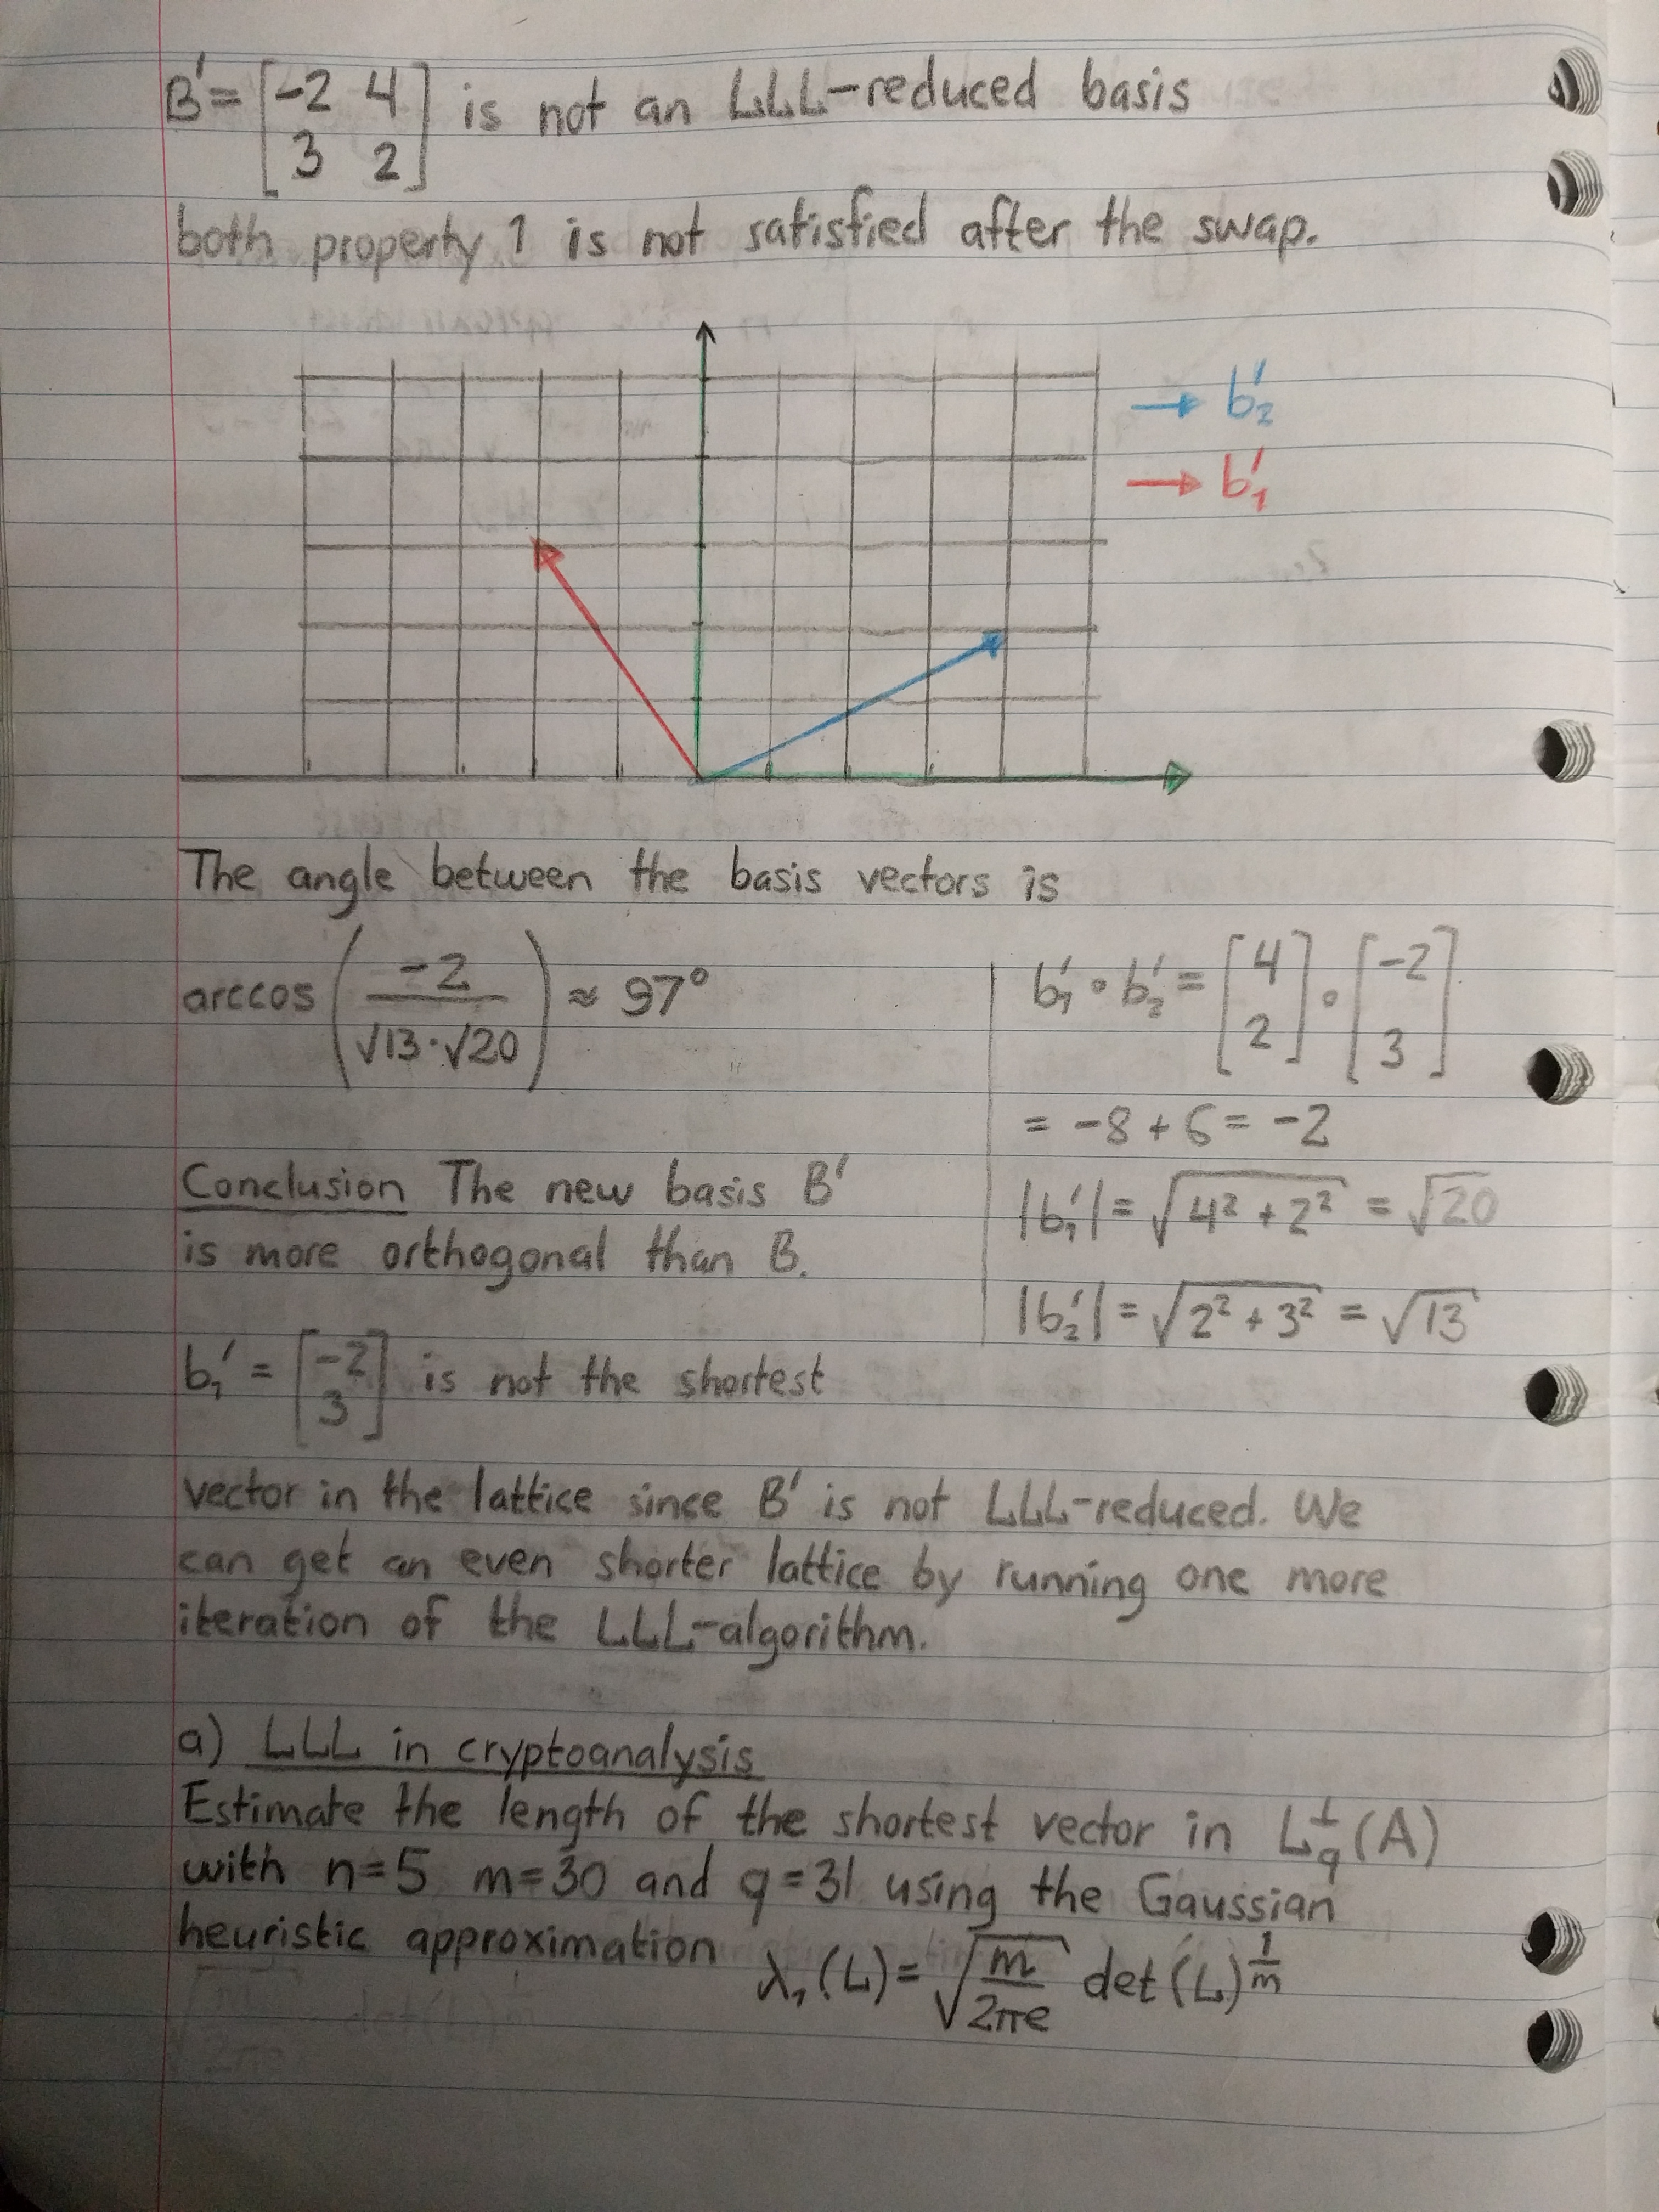 B' = [-2 4
3 2] is not an LLL-reduced basis
both property 1 is not satisfied after the swap.
→ b'₂
→ b'₁
The angle between the basis vectors is
arccos (-2 / √13·√20) ≈ 97°
b'₁ ∘ b'₂ = [4
2] ∘ [-2
3]
= -8 + 6 = -2
|b'₁| = √4² + 2² = √20
|b'₂| = √2² + 3² = √13
Conclusion The new basis B'
is more orthogonal than B.
b₁' = [-2
3] is not the shortest
vector in the lattice since B' is not LLL-reduced. We
can get an even shorter lattice by running one more
iteration of the LLL-algorithm.
a) LLL in cryptoanalysis
Estimate the length of the shortest vector in L⊥q(A)
with n=5 m=30 and q=31 using the Gaussian
heuristic approximation λ₁(L) = √m/2πe det(L)^1/m